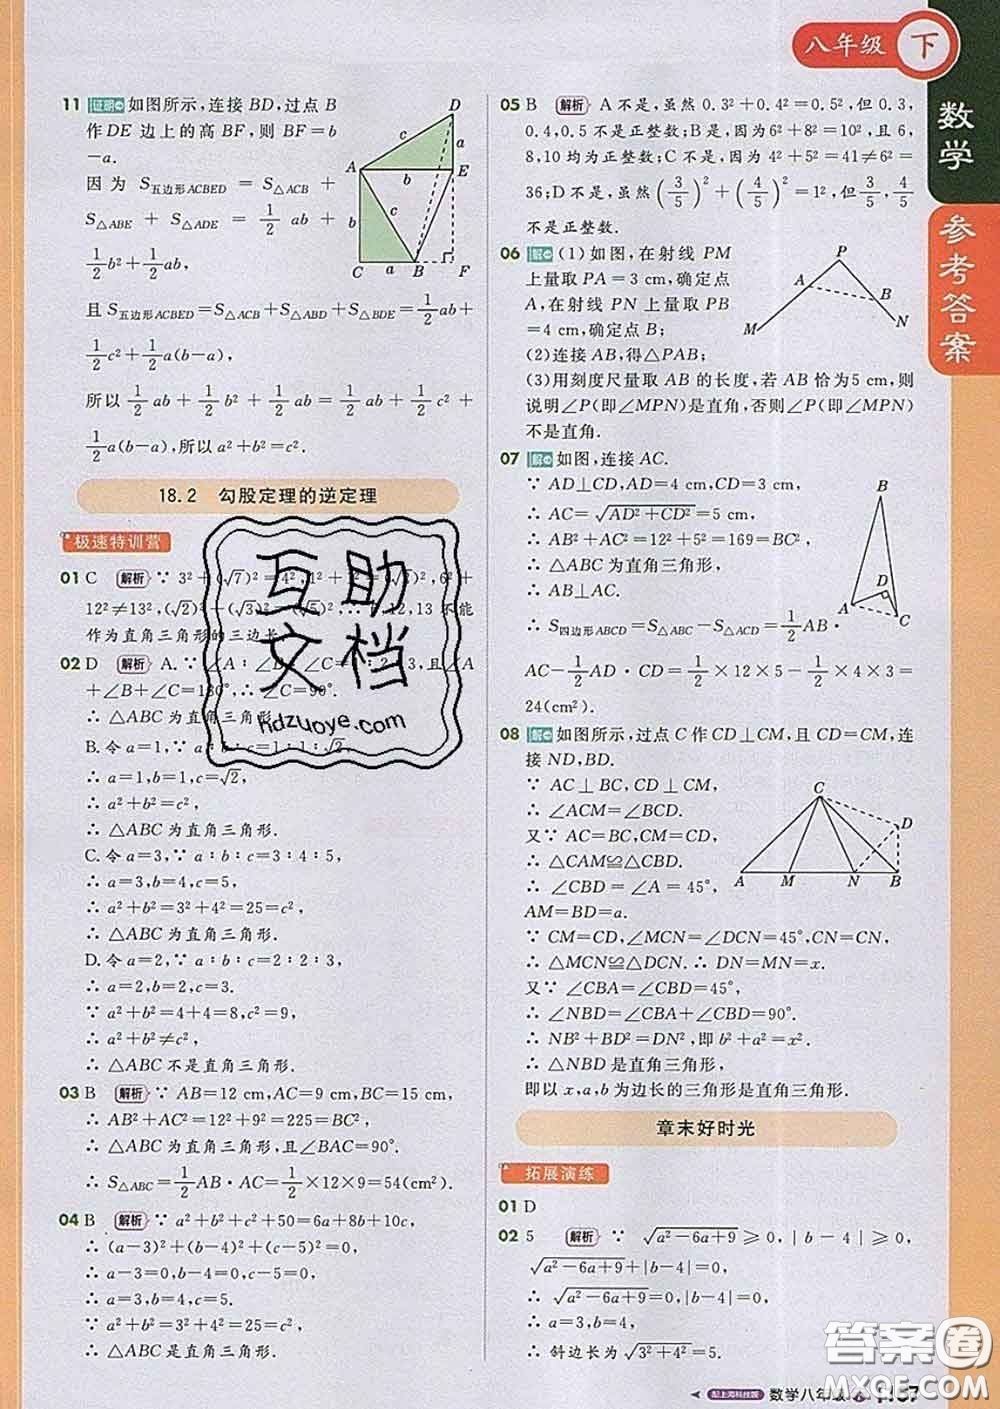 八年级 下
数学
参考答案
11 证明 如图所示,连接 BD,过点 B
作DE 边上的高 BF,则 BF=b
-a.
因为 S五边形ACBED = S△ACB +
S△ABE + S△ADE = 1/2 ab +
1/2b²+1/2ab,
且 S五边形ACBED=S△ACB+S△ABD+S△BDE=1/2ab+
1/2c²+1/2a(b-a),
所以 1/2ab + 1/2b² + 1/2ab = 1/2ab + 1/2c² +
1/2a(b-a),所以 a²+b²=c².
D
c
a
A
b
E
b
c
C
a
B
F
18.2 勾股定理的逆定理
极速特训营
01 C 解析 ∵ 3²+(√7)²=4²,1²+1²=(√2)²,6²+
12²≠13²,(√2)²+(√3)²=(√5)²,∴6,12,13 不能
作为直角三角形的三边长.
02 D 解析 A.∵∠A:∠B:∠C=1:2:3,且∠A
+∠B+∠C=180°,∴∠C=90°.
∴ △ABC 为直角三角形.
B.令 a=1,∵ a:b:c=1:1:√2,
∴ a=1,b=1,c=√2,
∴ a²+b²=c²,
∴ △ABC 为直角三角形.
C.令 a=3,∵ a:b:c=3:4:5,
∴ a=3,b=4,c=5,
∴ a²+b²=3²+4²=25=c²,
∴ △ABC 为直角三角形.
D.令 a=2,∵ a:b:c=2:2:3,
∴ a=2,b=2,c=3.
∵ a²+b²=4+4=8,c²=9,
∴ a²+b²≠c²,
∴ △ABC 不是直角三角形.
03 B 解析 ∵ AB=12 cm,AC=9 cm,BC=15 cm,
∴ AB²+AC²=12²+9²=225=BC²,
∴ △ABC 为直角三角形,且∠BAC=90°,
∴ S△ABC=1/2AB·AC=1/2×12×9=54(cm²).
04 B 解析 ∵ a²+b²+c²+50=6a+8b+10c,
∴ (a-3)²+(b-4)²+(c-5)²=0,
∴ a-3=0,b-4=0,c-5=0,
∴ a=3,b=4,c=5.
∵ a²+b²=c²,
∴ △ABC 是直角三角形.
05 B 解析 A 不是,虽然 0.3²+0.4²=0.5²,但 0.3,
0.4,0.5 不是正整数;B 是,因为6²+8²=10²,且 6,
8,10 均为正整数;C 不是,因为 4²+5²=41≠6²=
36;D 不是,虽然(3/5)²+(4/5)²=1²,但3/5,4/5
不是正整数.
06 解 (1)如图,在射线 PM
上量取 PA=3 cm,确定点
A,在射线 PN 上量取 PB
=4 cm,确定点 B;
(2)连接 AB,得△PAB;
(3)用刻度尺量取 AB 的长度,若 AB 恰为5 cm,则
说明∠P(即∠MPN)是直角,否则∠P(即∠MPN)
不是直角.
P
A
B
M
N
07 解 如图,连接 AC.
∵ AD⊥CD,AD=4 cm,CD=3 cm,
∴ AC=√(AD²+CD²)=5 cm,
∴ AB²+AC²=12²+5²=169=BC²,
∴ △ABC为直角三角形,
∴ AB⊥AC,
∴ S四边形ABCD=S△ABC-S△ACD=1/2AB·
AC-1/2AD·CD=1/2×12×5-1/2×4×3=
24(cm²).
B
D
A
C
08 解 如图所示,过点 C 作 CD⊥CM,且 CD=CM,连
接 ND,BD.
∵ AC⊥BC,CD⊥CM,
∴ ∠ACM=∠BCD.
又∵ AC=BC,CM=CD,
∴ △CAM≌△CBD.
∴ ∠CBD=∠A=45°,
AM=BD=a.
∵ CM=CD,∠MCN=∠DCN=45°,CN=CN,
∴ △MCN≌△DCN. ∴ DN=MN=x.
又∵ ∠CBA=∠CBD=45°,
∴ ∠NBD=∠CBA+∠CBD=90°.
∴ NB²+BD²=DN²,即 b²+a²=x².
∴ △NBD 是直角三角形,
即以 x,a,b 为边长的三角形是直角三角形.
C
D
A
M
N
B
章末好时光
拓展演练
01 D
02 5 解析 ∵ √(a²-6a+9)≥0,|b-4|≥0,
√(a²-6a+9)+|b-4|=0,
∴ √(a²-6a+9)=0,|b-4|=0,
∴ a=3,b=4,
∴ 斜边长为√(3²+4²)=5.
互助
文档
hdzuoye.com
配上海科技版 数学八年级
答案圈
MXQE.COM